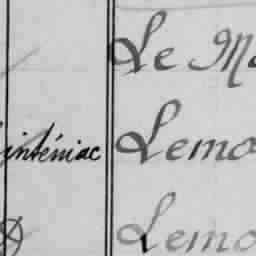 Le Ma
inténiac Lemo
Lemo